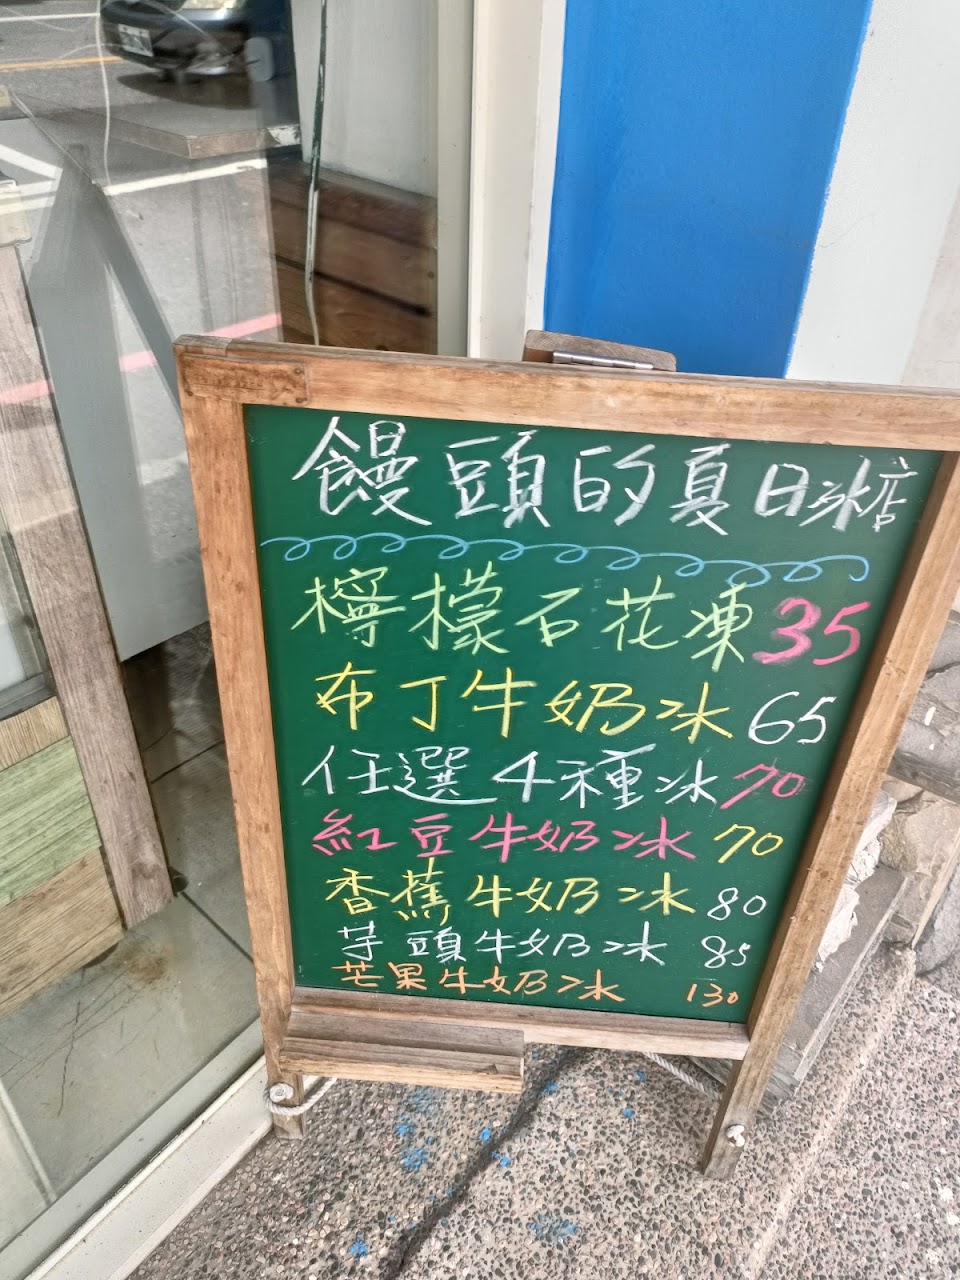 饅頭的夏日冰店
檸檬石花凍35
布丁牛奶冰 65
任選4種冰70
紅豆牛奶冰 70
香蕉牛奶冰 80
芋頭牛奶冰 85
芒果牛奶冰 130